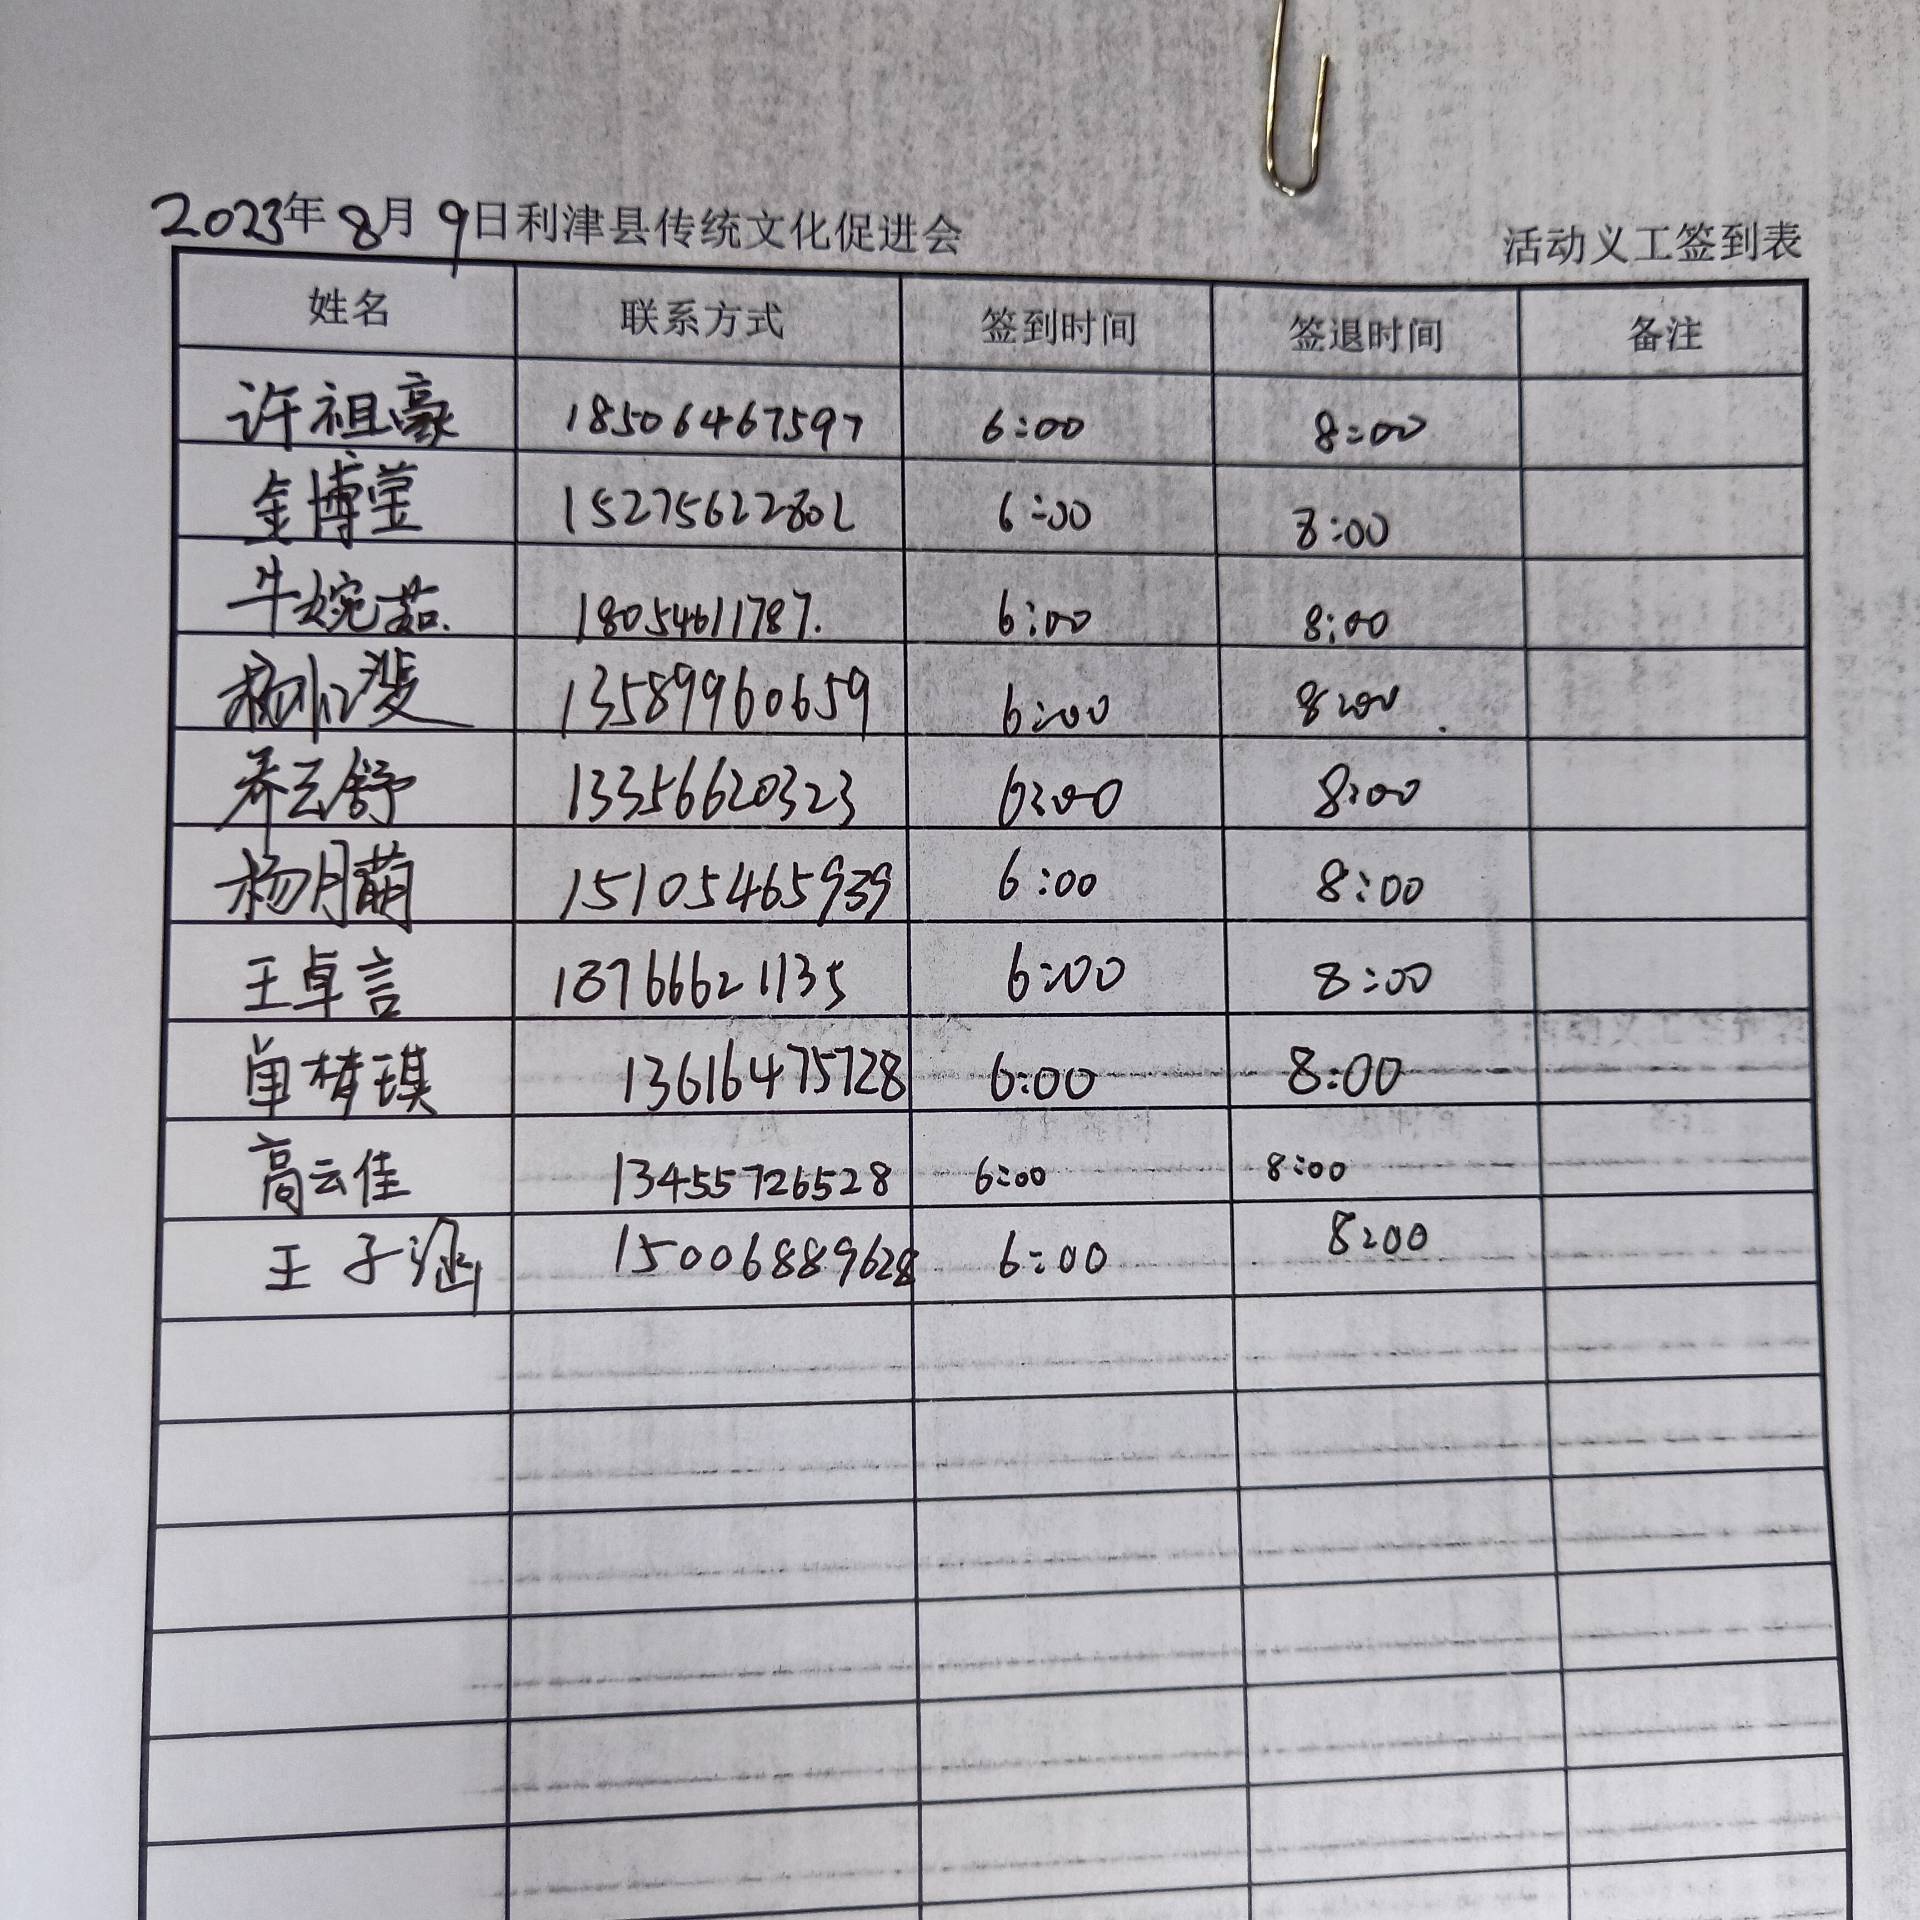 2023年8月9日利津县传统文化促进会 活动义工签到表
姓名 联系方式 签到时间 签退时间 备注
许祖豪 18506467597 6:00 8:00
金博莹 15275622802 6:00 8:00
牛婉茹. 18054611787. 6:00 8:00
杨 13589960659 6:00 8:00
乔云舒 13356620323 6:00 8:00
杨月萌 15105465939 6:00 8:00
王卓言 18766621135 6:00 8:00
单梦琪 13616475728 6:00 8:00
高云佳 13455726528 6:00 8:00
王子涵 15006889628 6:00 8:00